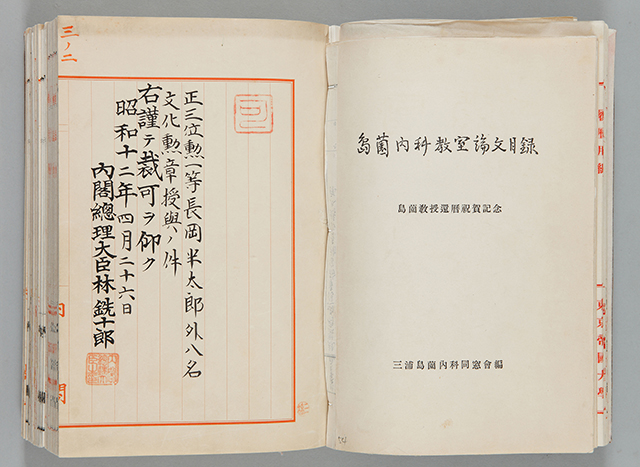 三ノ二
可
正三位勲一等長岡半太郎外八名
文化勲章授與ノ件
右謹テ裁可ヲ仰ク
昭和十二年四月二十六日
內閣總理大臣林銑十郎
內閣
島薗內科教室論文目録
島薗教授還曆祝賀記念
三浦島薗內科同窓會編